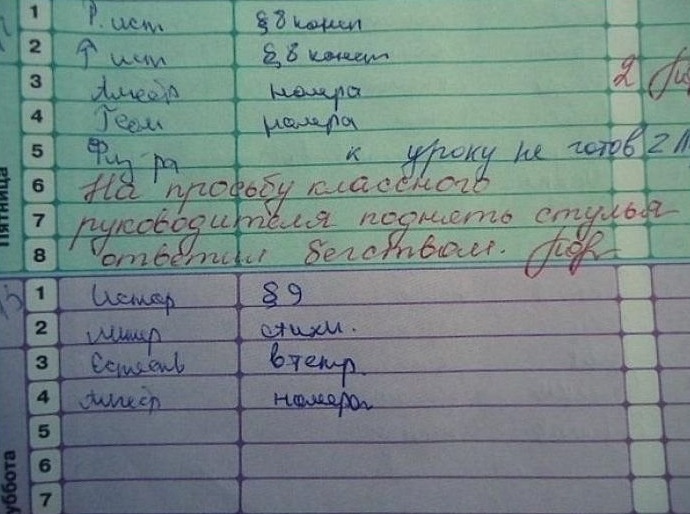 1 Р. ист § 8 консп
2 Р ист § 8 консп
3 Алгебр номера 2
4 Геом номера
5 Физ-ра к уроку не готов 2
6 На просьбу классного
7 руководителя поднять стулья
8 ответил бегством.
Пятница
1 Истор § 9
2 Литер стихи.
3 Естеств в тетр.
4 Алгебр номера
5
6
7
уббота